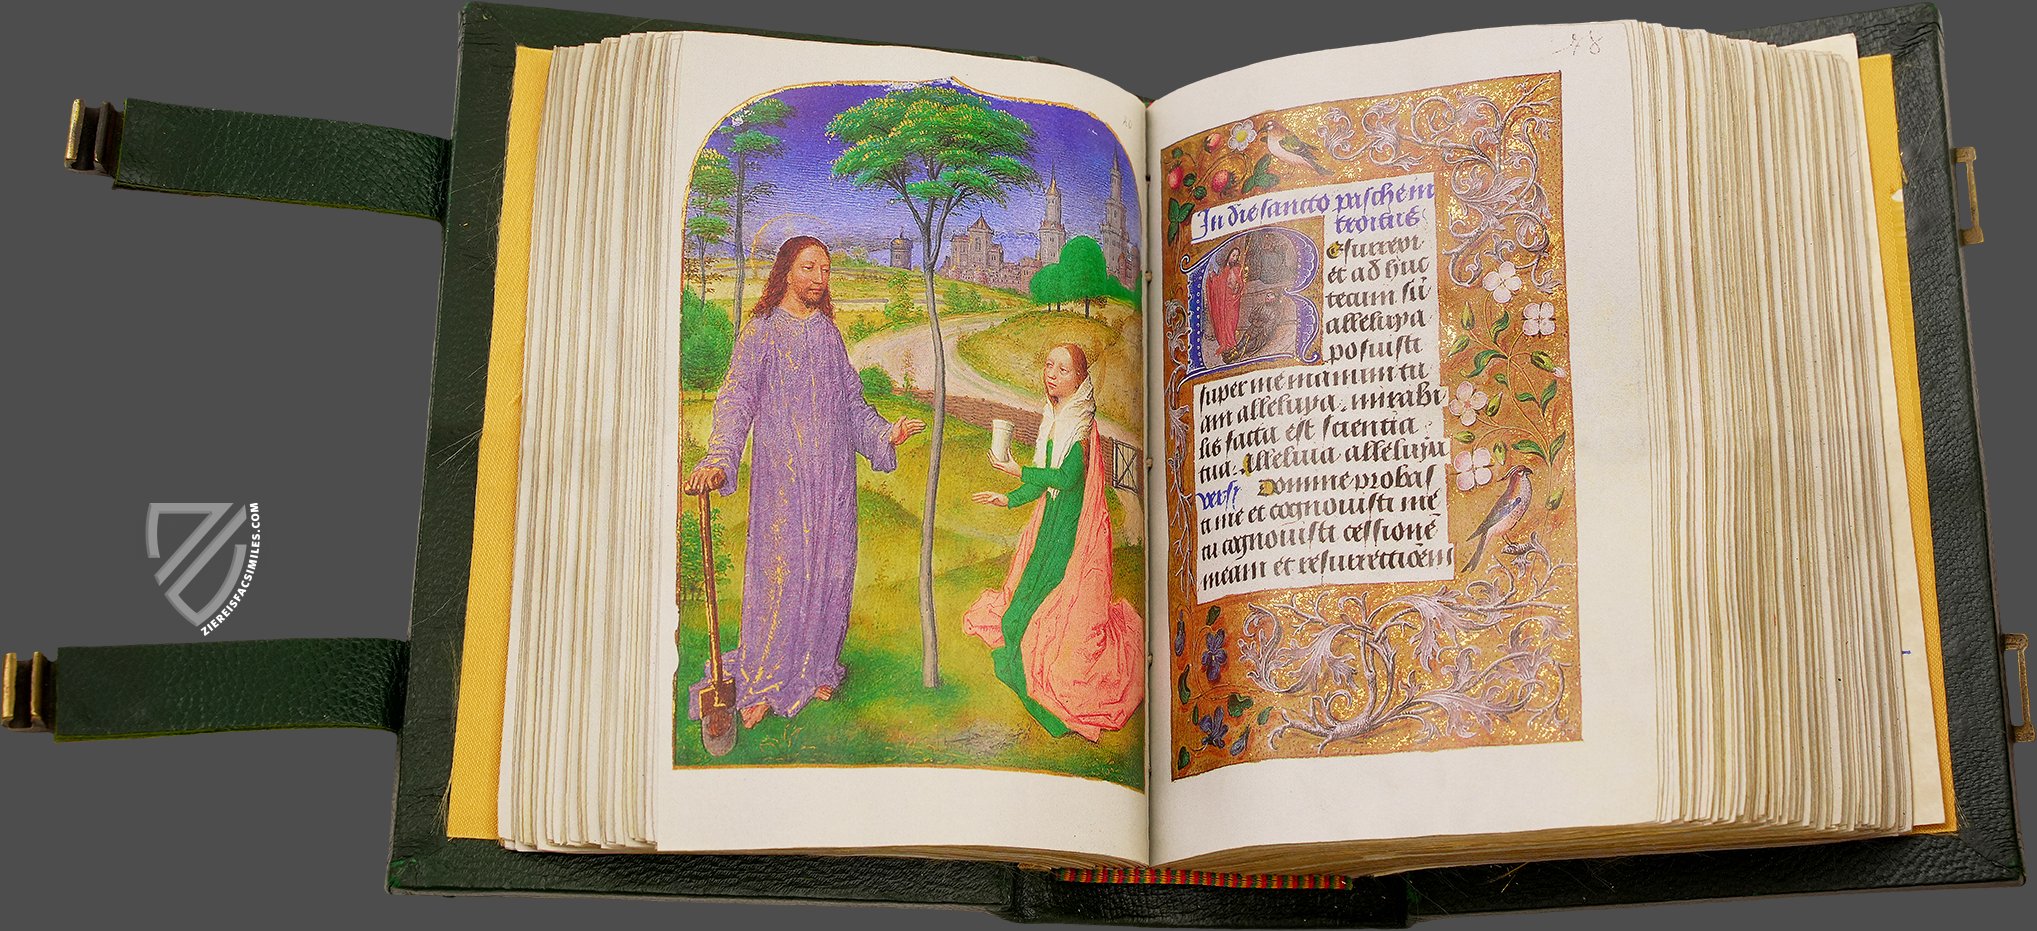 48
In die sancto pasche in
troitus
Resurrexi
et ad huc
tecum sū
alleluya
posuisti
super me manum tu
am alleluya. mirabi
lis facta est scientia
tua. Alleluia alleluya
versꝰ Domine probas
ti me et cognouisti me
tu cognouisti cessionē
meam et resurrectioēm
ZIEREISFACSIMILES.COM